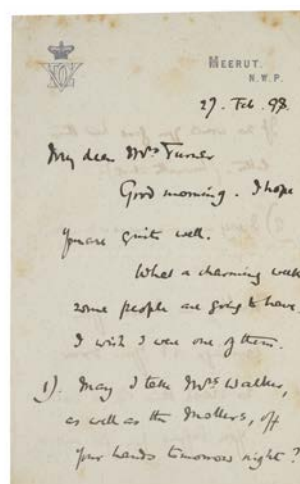 MEERUT.
N.W.P.
27. Feb. 98.
My dear Mrs Turner
Good morning. I hope
you are quite well.
What a charming week
some people are going to have,
I wish I were one of them.
1). May I take Mrs Walker,
as well as the Mollers, off
your hands tomorrow night?